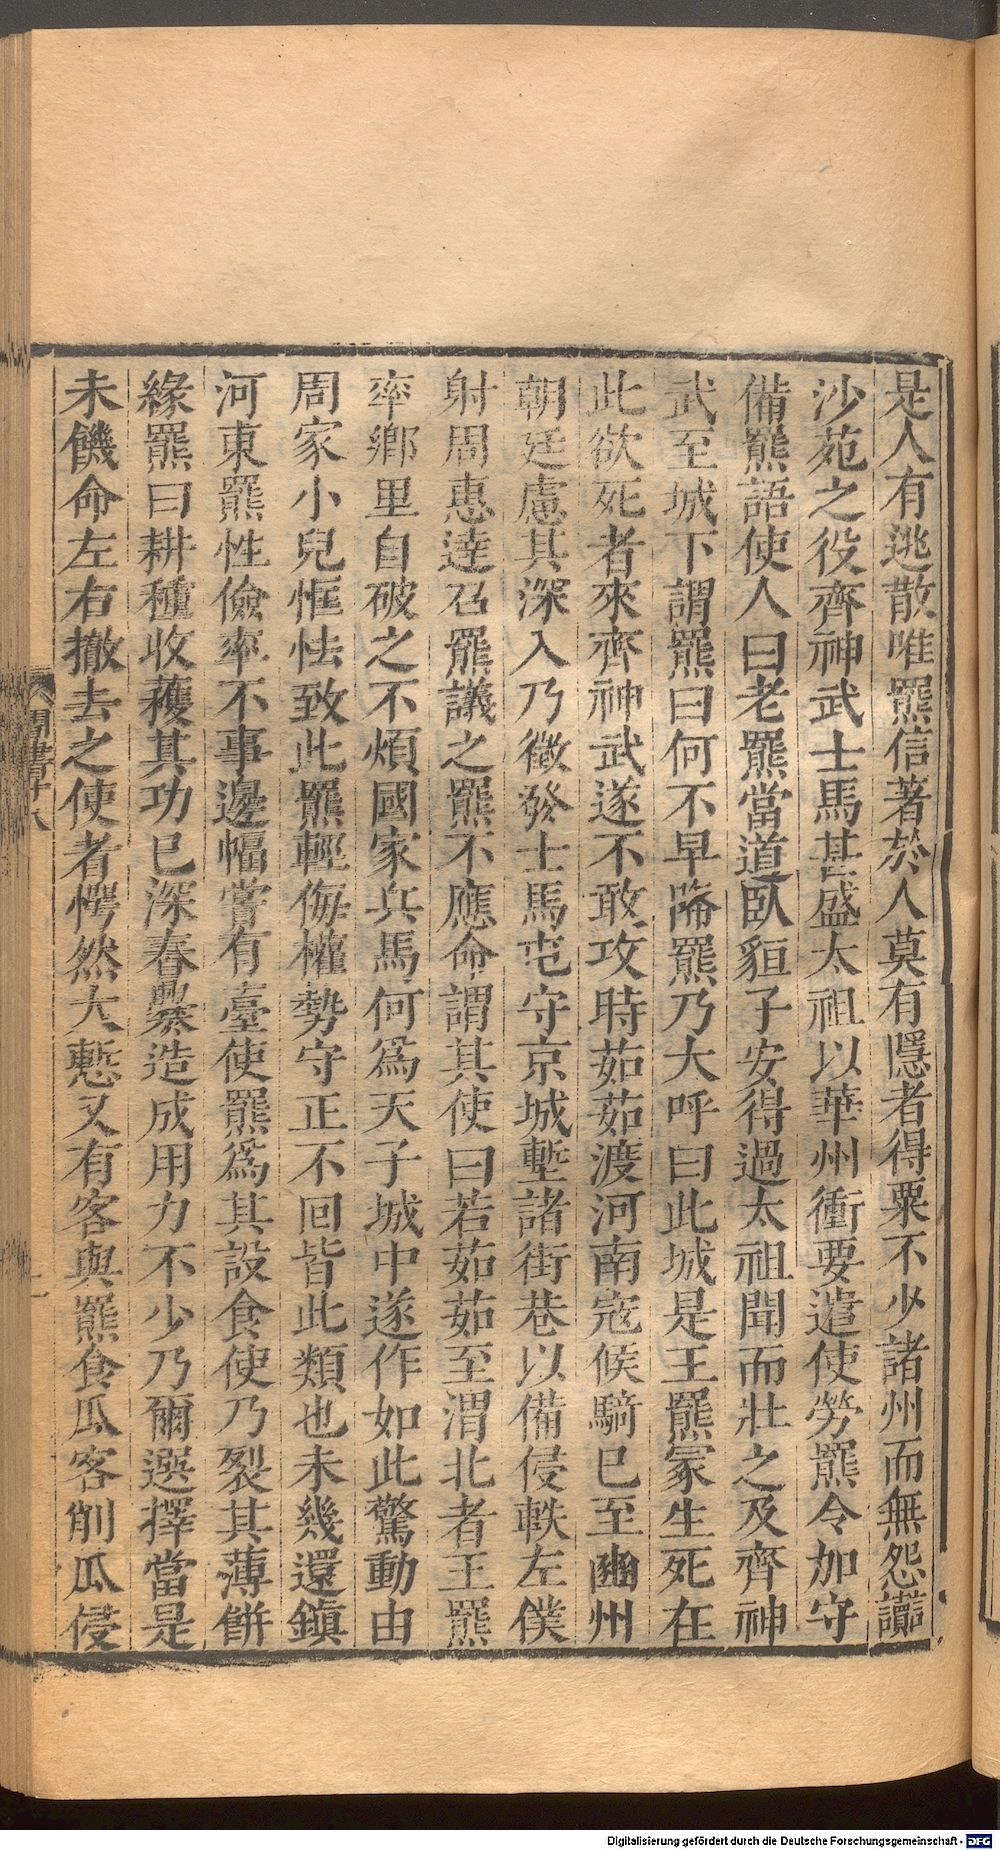 是人有逃散唯羆信著於人莫有隱者得粟不少諸州而無怨讟
沙苑之役齊神武士馬甚盛太祖以華州衝要遣使勞羆令加守
備羆語使人曰老羆當道臥貆子安得過太祖聞而壯之及齊神
武至城下謂羆曰何不早降羆乃大呼曰此城是王羆冢生死在
此欲死者來齊神武遂不敢攻時茹茹渡河南寇候騎已至豳州
朝廷慮其深入乃徵發士馬屯守京城塹諸街巷以備侵軼左僕
射周惠達召羆議之羆不應命謂其使曰若茹茹至渭北者王羆
率鄉里自破之不煩國家兵馬何爲天子城中遂作如此驚動由
周家小兒恇怯致此羆輕侮權勢守正不回皆此類也未幾還鎮
河東羆性儉率不事邊幅嘗有臺使羆爲其設食使乃裂其薄餅
緣羆曰耕種收穫其功已深舂爨造成用力不少乃爾選擇當是
未饑命左右撤去之使者愕然大慙又有客與羆食瓜客削瓜侵
周書十八
Digitalisierung gefördert durch die Deutsche Forschungsgemeinschaft - DFG